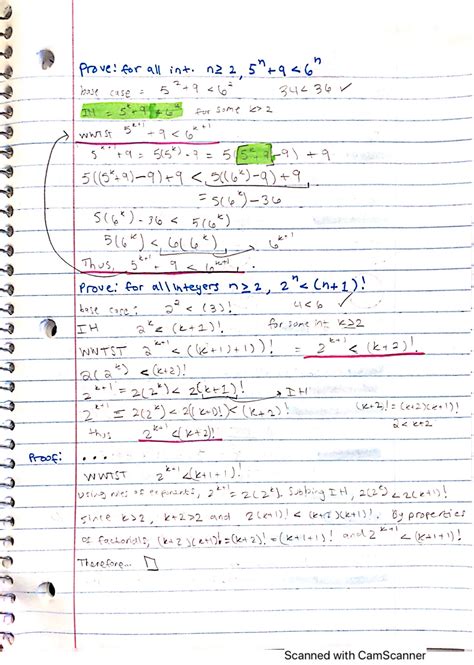 Prove: for all int. n≥2, 5^n + 9 < 6^n
base case = 5^2 + 9 < 6^2    34 < 36 ✓
IH = 5^k + 9 < 6^k for some k>2
WWTST 5^{k+1} + 9 < 6^{k+1}
5^{k+1} + 9 = 5(5^k) + 9 = 5((5^k + 9) - 9) + 9
5((5^k + 9) - 9) + 9 < 5((6^k) - 9) + 9
= 5(6^k) - 36
5(6^k) - 36 < 5(6^k)
5(6^k) < 6(6^k) → 6^{k+1}
Thus, 5^{k+1} + 9 < 6^{k+1}.
Prove: for all integers n≥2, 2^n < (n+1)!
base case: 2^2 < (3)!    4 < 6 ✓
IH 2^k < (k+1)! for some int k≥2
WWTST 2^{k+1} < ((k+1)+1)! = 2^{k+1} < (k+2)!
2(2^k) < (k+2)!
2^{k+1} = 2(2^k) < 2(k+1)! → IH
2^{k+1} = 2(2^k) < 2((k+1)!) < (k+2)!    (k+2)! = (k+2)(k+1)!
2 < k+2
thus 2^{k+1} < (k+2)!
Proof: ...
WWTST 2^{k+1} < (k+1+1)!
Using rules of exponents, 2^{k+1} = 2(2^k). Subbing IH, 2(2^k) < 2(k+1)!
Since k>2, k+2>2 and 2(k+1)! < (k+2)(k+1)!. By properties
of factorials, (k+2)(k+1)! = (k+2)! = (k+1+1)! and 2^{k+1} < (k+1+1)!
Therefore... □
Scanned with CamScanner